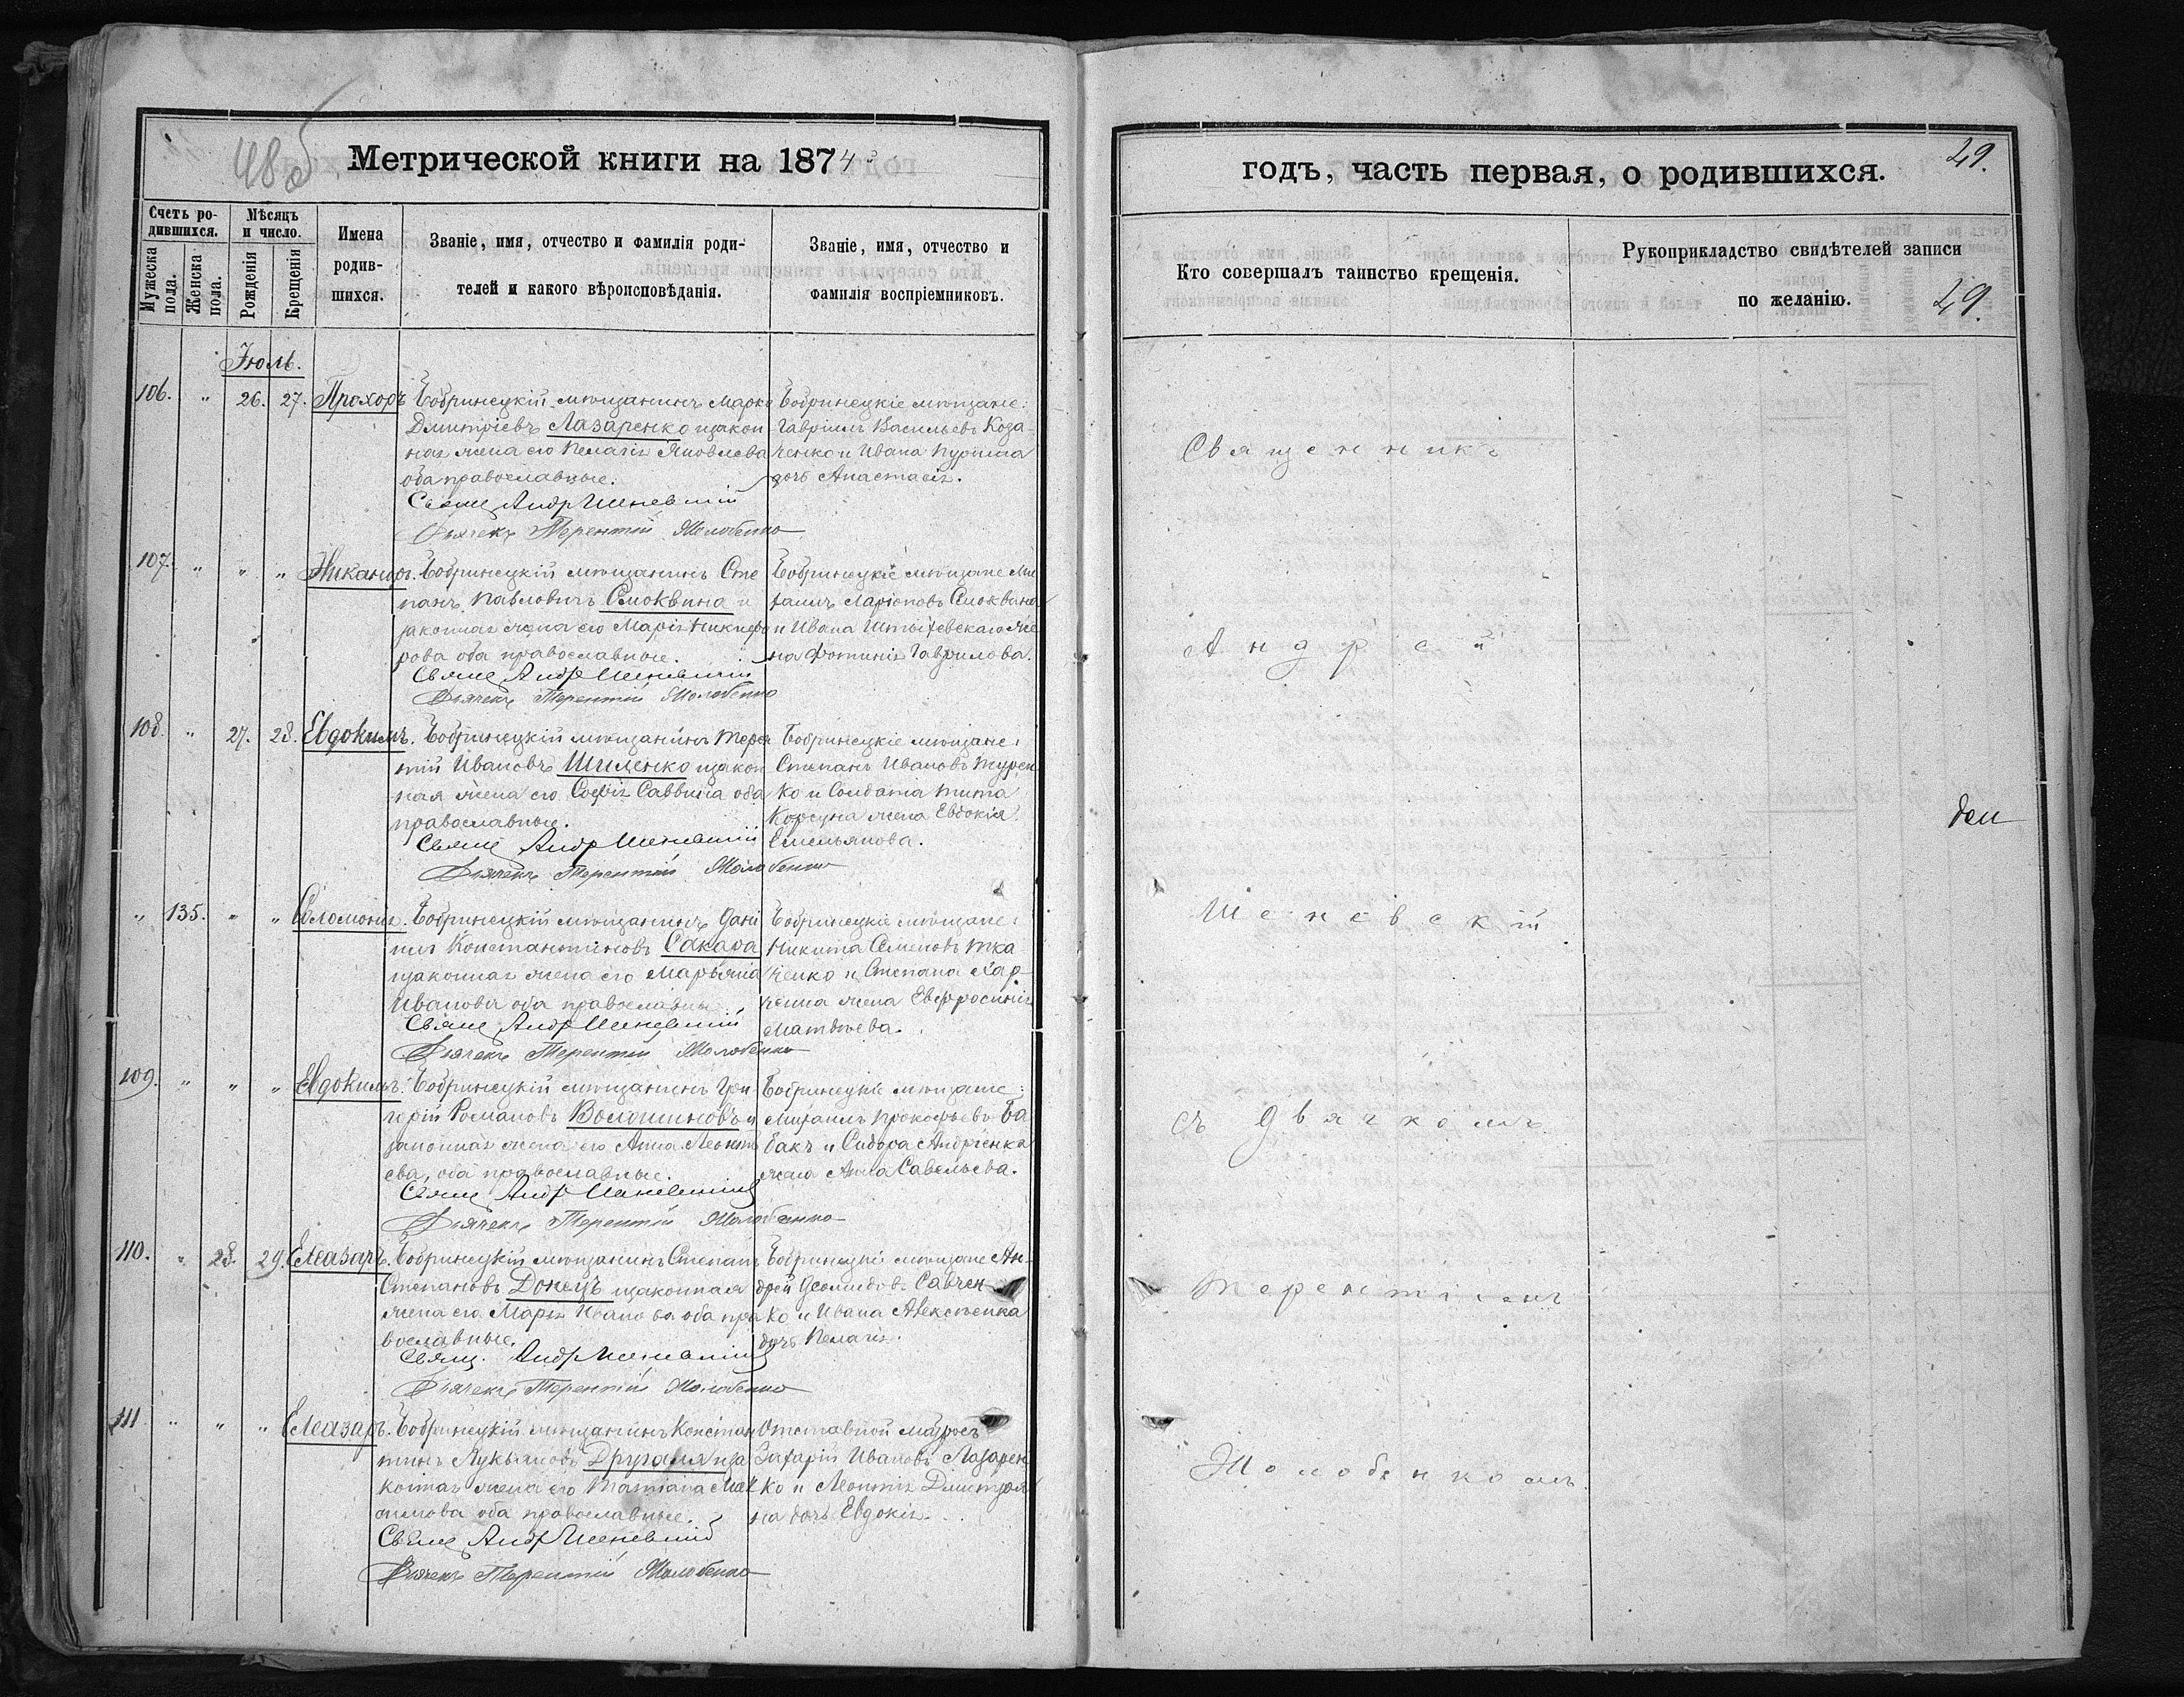 48об
Метрической книги на 1874й
Счетъ ро-
дившихся.
Мужеска пола.
Женска пола.
Мѣсяцъ
и число.
Рожденія
Крещенія
Имена
родив-
шихся.
Званіе, имя, отчество и фамилія роди-
телей и какого вѣроисповѣданія.
Званіе, имя, отчество и
фамилія воспріемниковъ.
Іюль.
106. " 26. 27. Прохоръ
Бобринецкій мѣщанинъ Марко
Дмитріевъ Лазаренко изакон
ная жена его Пелагія Яковлева
оба православные.
Свящ Андр Шеневскій
Дьячекъ Терентій Жолобенко
Бобринецкіе мѣщане:
Гавріилъ Васильевъ Коза-
ченко и Ивана
дочь Анастасія.
107. " " " Никаноръ.
Бобринецкій мѣщанинъ Сте
панъ Павловичъ Смоквина и
законная жена его Марія Никифо
рова оба православные.
Свящ Андр Шеневскій
Дьячекъ Терентій Жолобенко
Бобринецкіе мѣщане Ми
хаилъ Ларіоновъ Смоквина
и Ивана Штыхевскаго же
на Фотинія Гаврилова.
108. " 27. 28. Евдокимъ.
Бобринецкій мѣщанинъ Терен
тій Ивановъ Шиленко изакон
ная жена его Софія Саввина оба
православные.
Свящ Андр Шеневскій
Дьячекъ Терентій Жолобенко
Бобринецкіе мѣщане:
Степанъ Ивановъ Турен
ко и Солдата Тита
Корсуна жена Евдокія
Емельянова.
" 135. " " Соломонія.
Бобринецкій мѣщанинъ Дані
илъ Константиновъ Сакара
изаконная жена его Марьяна
Иванова оба православны
Свящ Андр Шеневскій
Дьячекъ Терентій Жолобенко
Бобринецкіе мѣщане:
Никита Семеновъ Тка
ченко и Степана Хар-
ченка жена Евфросинія
Матвѣева.
109. " " " Евдокимъ.
Бобринецкій мѣщанинъ Гри
горій Романовъ Волошиновъ и
законная жена его Анна Леонть
ева, оба православные.
Свящ Андр Шеневскій
Дьячекъ Терентій Жолобенко
Бобринецкіе мѣщане:
Михаилъ Прокофьевъ Ба
бакъ и Сидора Андріенка
жена Анна Савельева.
110. " 28. 29. Елеазаръ.
Бобринецкій мѣщанинъ Степанъ
Степановъ Донецъ изаконная
жена его Марія Иванова оба пра
вославные.
Свящ. Андр Шеневскій
Дьячекъ Терентій Жолобенко
Бобринецкіе мѣщане Ан-
дрей Демидовъ Савчен-
ко и Ивана Алексѣенка
дочь Пелагія.
111. " " " Елеазаръ.
Бобринецкій мѣщанинъ Констан
тинъ Лукьяновъ Другаля иза
конная жена его Татіана Мак
симова оба православные.
Свящ Андр Шеневскій
Дьячекъ Терентій Жолобенко
Отставной матросъ
Захарій Ивановъ Лазарен
ко и Леонтія
на дочь Евдокія.
49.
годъ, часть первая, о родившихся.
Кто совершалъ таинство крещенія.
Рукоприкладство свидѣтелей записи
по желанію.
49.
Священникъ
Андрей
Шеневскій
съ Дьячкомъ
Терентіемъ
Жолобенкомъ.